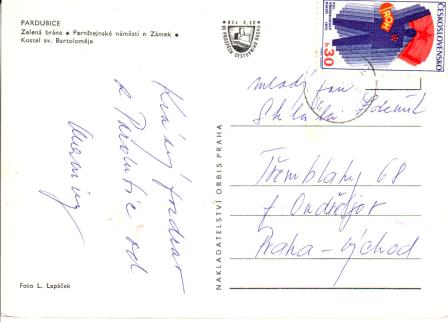 PARDUBICE
Zelená brána • Pernštejnské náměstí a Zámek •
Kostel sv. Bartoloměje
ČESKOSLOVENSKO
ROH
h 30
Krásný pozdrav
z Pardubic od
Maminy
Foto L. Lapáček
NAKLADATELSTVÍ ORBIS PRAHA
mladý pan
Zdeněk
Třemblaty 68
p. Ondřejov
Praha-východ